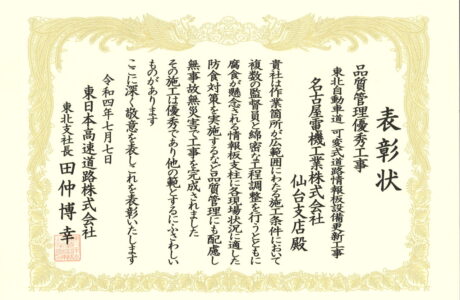 表彰状
品質管理優秀工事
東北自動車道 可変式道路情報板設備更新工事
名古屋電機工業株式会社
仙台支店殿
貴社は作業箇所が広範囲にわたる施工条件において
複数の監督員と綿密な工程調整を行うとともに
腐食が懸念される情報板支柱に各現場状況に適した
防食対策を実施するなど品質管理にも配慮し
無事故無災害で工事を完成されました
その施工は優秀であり他の範とするにふさわしい
ものがあります
ここに深く敬意を表しこれを表彰いたします
令和四年七月七日
東日本高速道路株式会社
東北支社長 田仲博幸